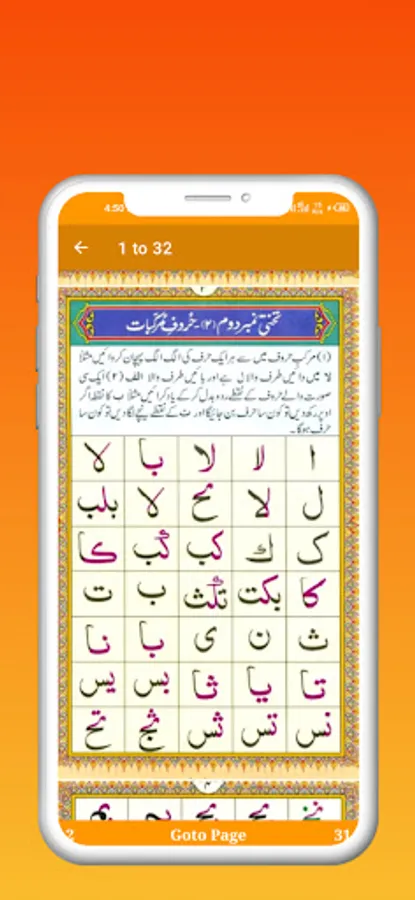 4:50
1 to 32
٢
تختی نمبر دوم (٢) حُروفِ مُرکّبات
(١) مرکب حروف میں سے ہر ایک حرف کی الگ الگ پہچان کروائیں مثلاً
لا میں دائیں طرف والا ل ہے اور بائیں طرف والا الف (٢) ایک سی
صورت والے حروف کے نقطے رد و بدل کر کے یاد کرائیں مثلاً ب کا نقطہ اگر
اوپر رکھ دیں تو کون سا حرف بن جائیگا اور ت کے نقطے نیچے لگا دیں تو کون سا
حرف ہوگا۔
ا لا لا با لا
ل لا مح لا بلب
ک ك كب كب كا
كا بكت تلث ب ت
ث ن ی با نا
تا يا ثا بس يس
نس تس ثس ثج تح
٣
2 Goto Page 31